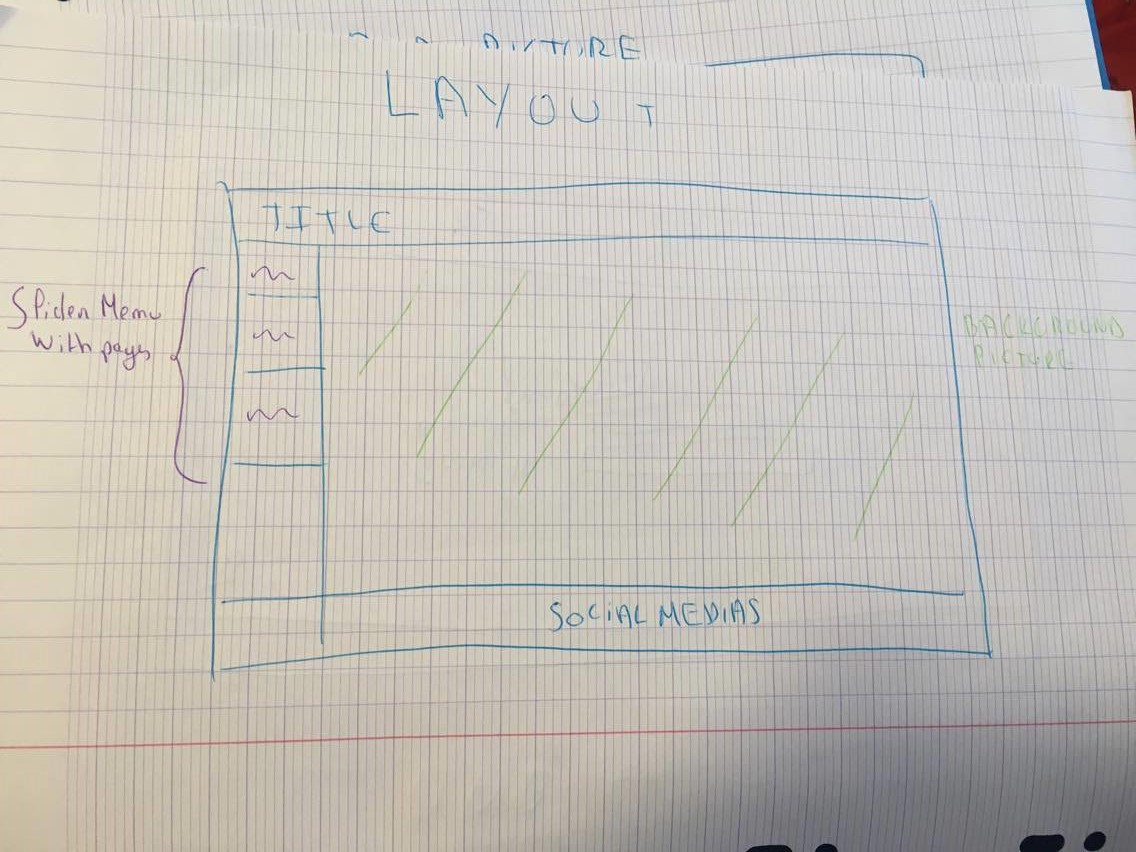 LAYOUT
TITLE
Spider Menu
With pages
BACKGROUND
PICTURE
SOCiAL MEDiAS